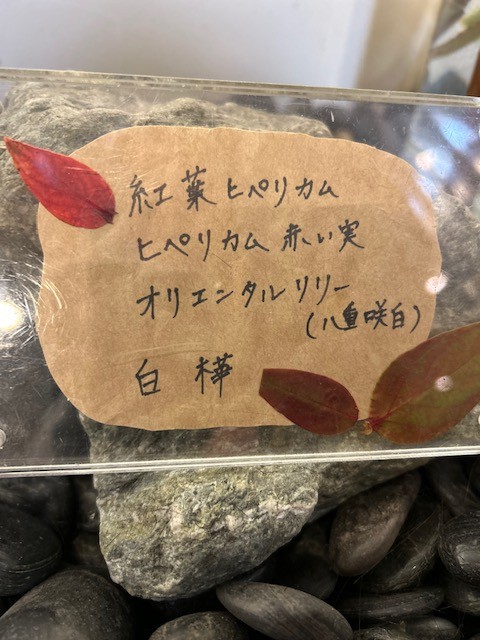 紅葉ヒペリカム
ヒペリカム 赤い実
オリエンタルリリー
(八重咲白)
白樺